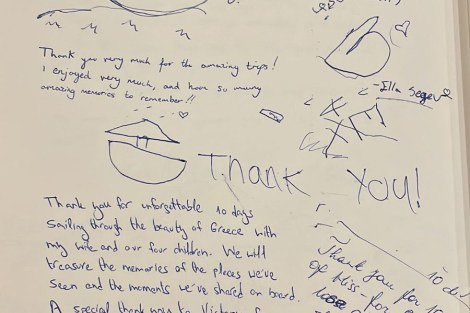 Thank you very much for the amazing trips!
I enjoyed very much, and have so many
amazing memories to remember!!
-Ella Segev
Thank You!
Thank you for unforgettable 10 days
sailing through the beauty of Greece with
my wife and our four children. We will
treasure the memories of the places we've
seen and the moments we've shared on board.
A special thank you to
Thank you for 10
of bliss - for